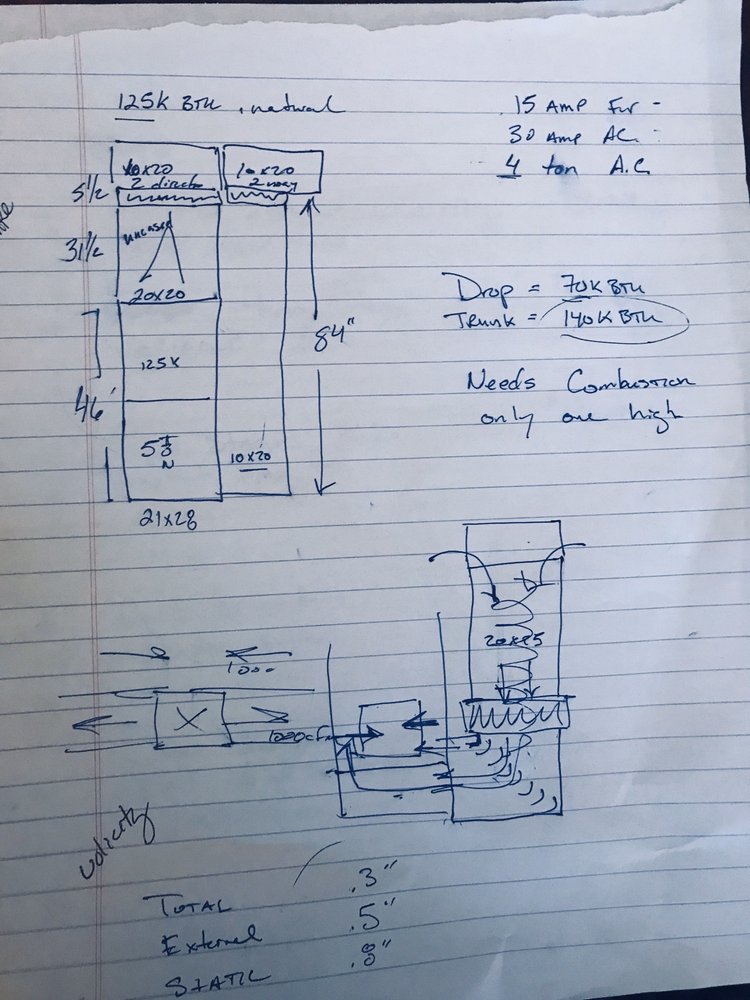 125K BTU . natural
15 Amp Fur -
30 Amp AC -
4 ton A.C
10x20
2 direct
10x20
2 way
5 1/2
31 1/2
uncased
20x20
84"
Drop = 70K BTU
Trunk = 140K BTU
Needs Combustion
only one high
125K
46"
5 Ton
10x20
21x28
20x25
1000
X
1000cfm
velicity
Total
External
Static
.3"
.5"
.8"